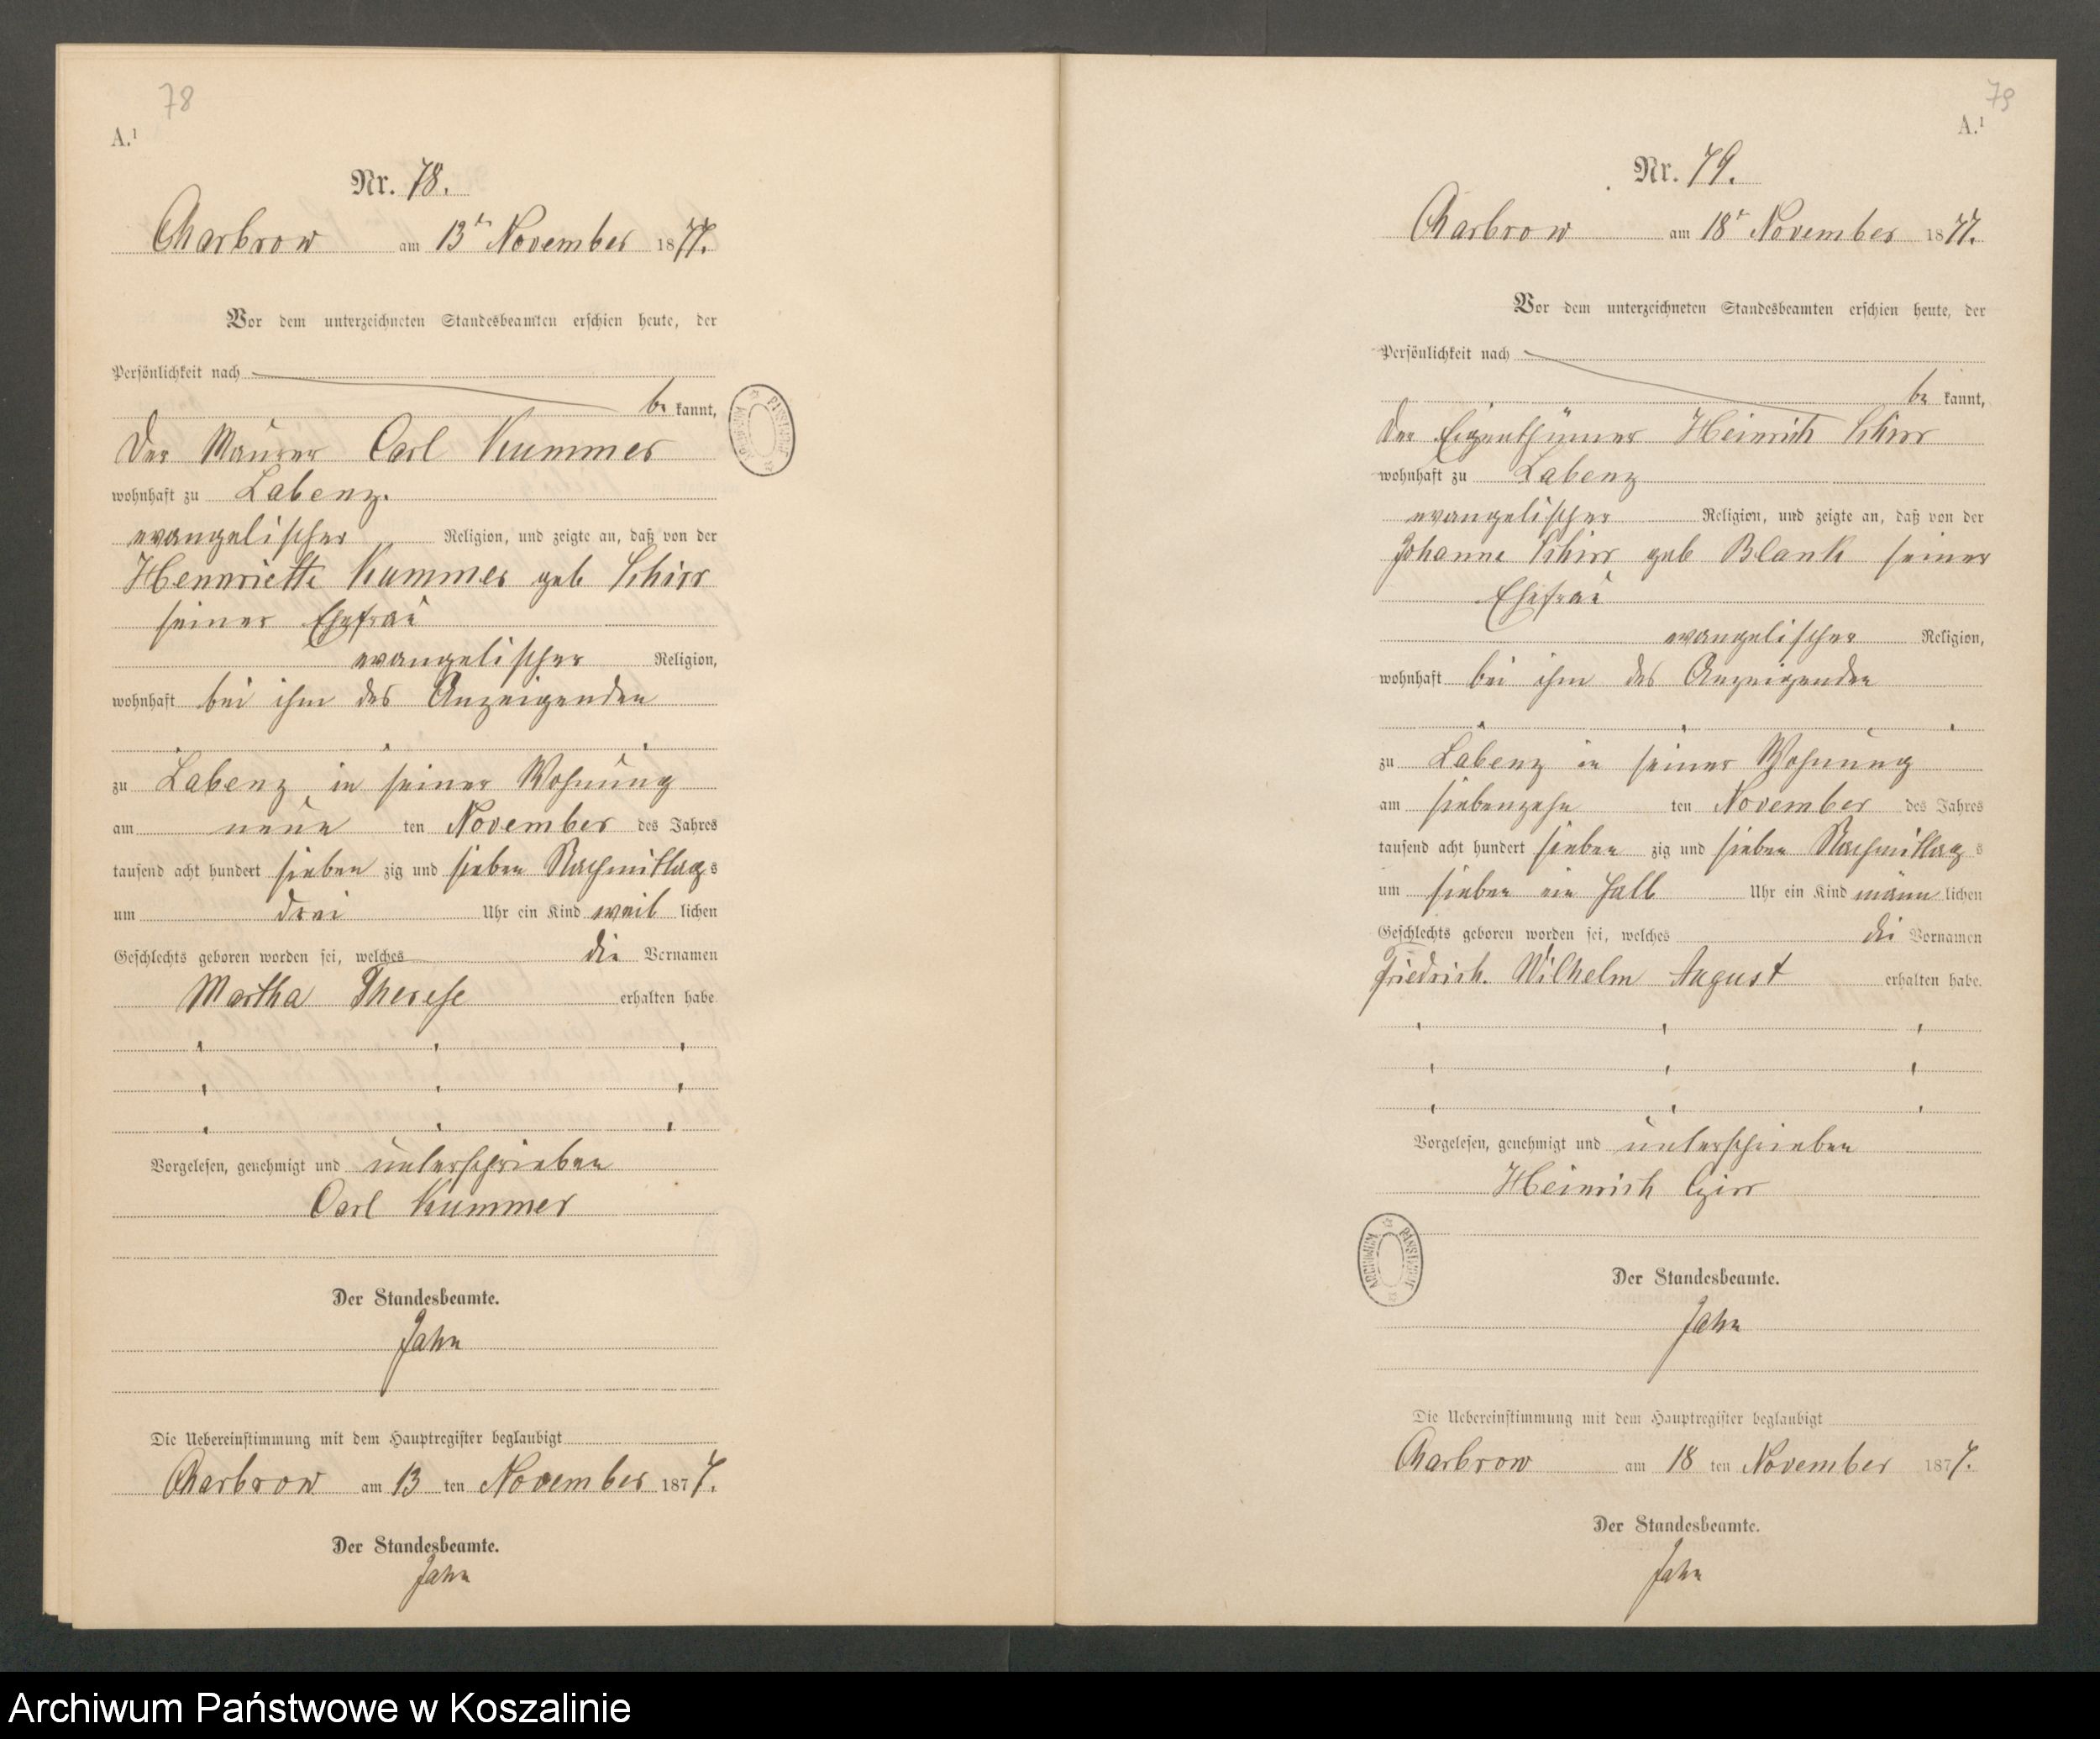 78
A.¹
Nr. 78.
Charbrow am 13ᵗ November 1877.
Vor dem unterzeichneten Standesbeamten erschien heute, der
Persönlichkeit nach
be kannt,
der Maurer Carl Kummer
wohnhaft zu Labenz.
evangelischer Religion, und zeigte an, daß von der
Hennriette Kummer geb Schirr
seiner Ehefrau
evangelischer Religion,
wohnhaft bei ihm des Anzeigenden
zu Labenz in seiner Wohnung
am neun ten November des Jahres
tausend acht hundert sieben zig und sieben Nachmittags
um drei Uhr ein Kind weib lichen
Geschlechts geboren worden sei, welches die Vornamen
Martha Therese erhalten habe
Vorgelesen, genehmigt und unterschrieben
Carl Kummer
Der Standesbeamte.
Jahn
Die Uebereinstimmung mit dem Hauptregister beglaubigt
Charbrow am 13 ten November 1877.
Der Standesbeamte.
Jahn
ARCHIWUM PAŃSTWOWE
79
A.¹
Nr. 79.
Charbrow am 18ᵗ November 1877.
Vor dem unterzeichneten Standesbeamten erschien heute, der
Persönlichkeit nach
be kannt,
der Eigenthümer Heinrich Schirr
wohnhaft zu Labenz
evangelischer Religion, und zeigte an, daß von der
Johanne Schirr geb Blank seiner
Ehefrau
evangelischer Religion,
wohnhaft bei ihm des Anzeigenden
zu Labenz in seiner Wohnung
am siebenzehn ten November des Jahres
tausend acht hundert sieben zig und sieben Nachmittags
um sieben ein halb Uhr ein Kind männ lichen
Geschlechts geboren worden sei, welches die Vornamen
Friedrich. Wilhelm August erhalten habe.
Vorgelesen, genehmigt und unterschrieben
Heinrich
ARCHIWUM PAŃSTWOWE
Der Standesbeamte.
Jahn
Die Uebereinstimmung mit dem Hauptregister beglaubigt
Charbrow am 18 ten November 1877.
Der Standesbeamte.
Jahn
Archiwum Państwowe w Koszalinie